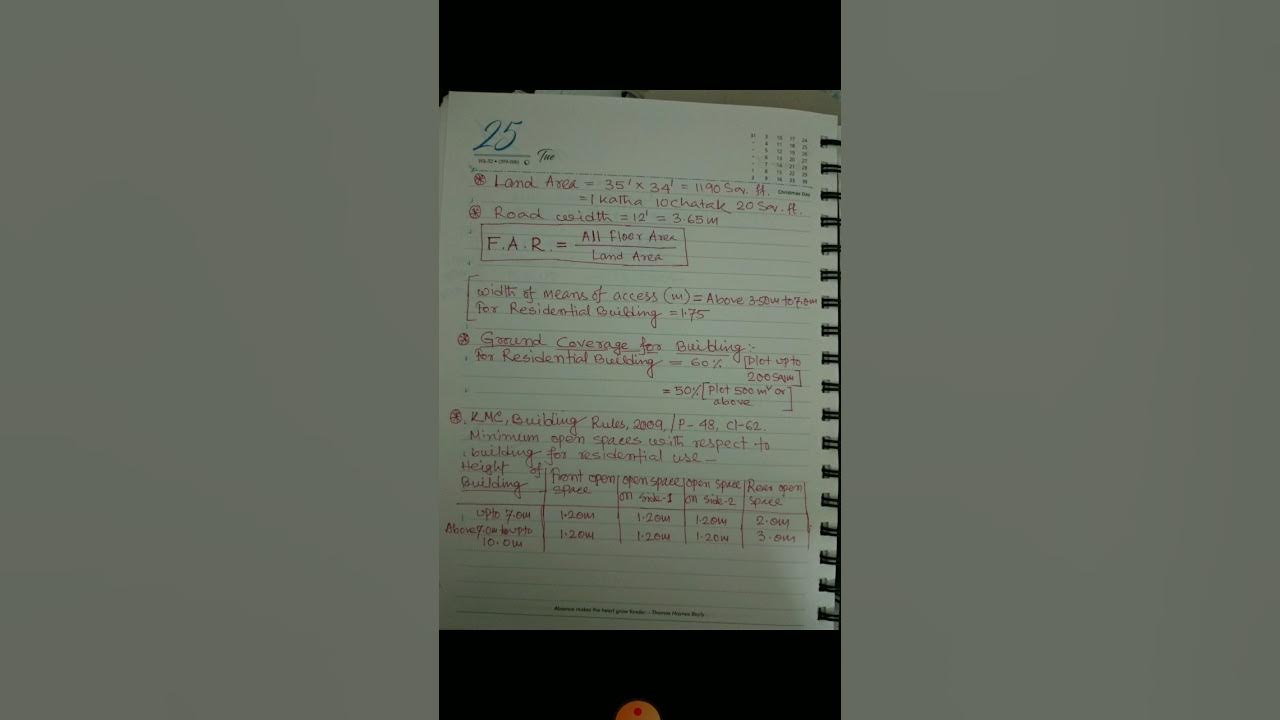 25
Tue
Christmas Day
Land Area = 35' x 34' = 1190 Sqr. ft.
= 1 Katha 10 chatak 20 Sqr. ft.
Road width = 12' = 3.65m
F.A.R. = All Floor Area
Land Area
width of means of access (m) = Above 3.50m to 7.0m
For Residential Building = 1.75
Ground Coverage for Building :-
For Residential Building = 60% [Plot up to
200 sqm]
= 50% [Plot 500 m² or
above]
K.M.C, Building Rules, 2009, / P- 48, Cl-62.
Minimum open spaces with respect to
building for residential use -
Height of Building | Front open space | open space on side-1 | open space on side-2 | Rear open space
upto 7.0m | 1.20m | 1.20m | 1.20m | 2.0m
Above 7.0m to upto 10.0m | 1.20m | 1.20m | 1.20m | 3.0m
Absence makes the heart grow fonder. - Thomas Haynes Bayly